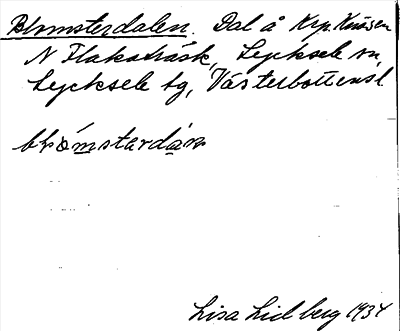 Blomsterdalen. Dal å Krp. Knösen
N Flakaträsk, Lycksele sn,
Lycksele tg, Västerbottens l
blòmstardán
Lisa Lidberg 1934